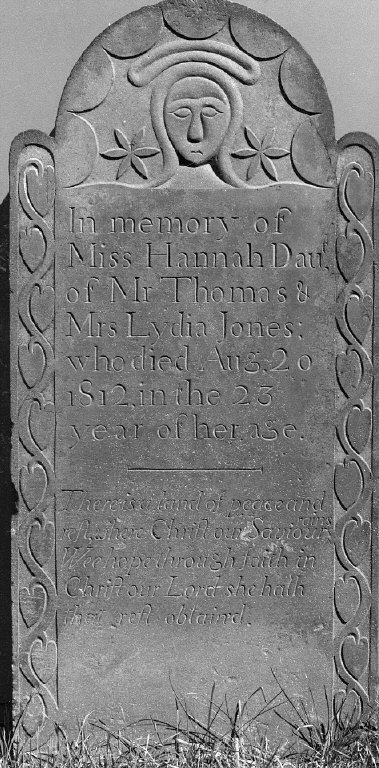 In memory of
Miss Hannah Daur,
of Mr Thomas &
Mrs Lydia Jones;
who died Aug. 20
1812, in the 23
year of her, age.
There is a land of peace and
rest, where Christ our Saviour
rains
Wee hope through faith in
Christ our Lord she hath
that rest obtaind.